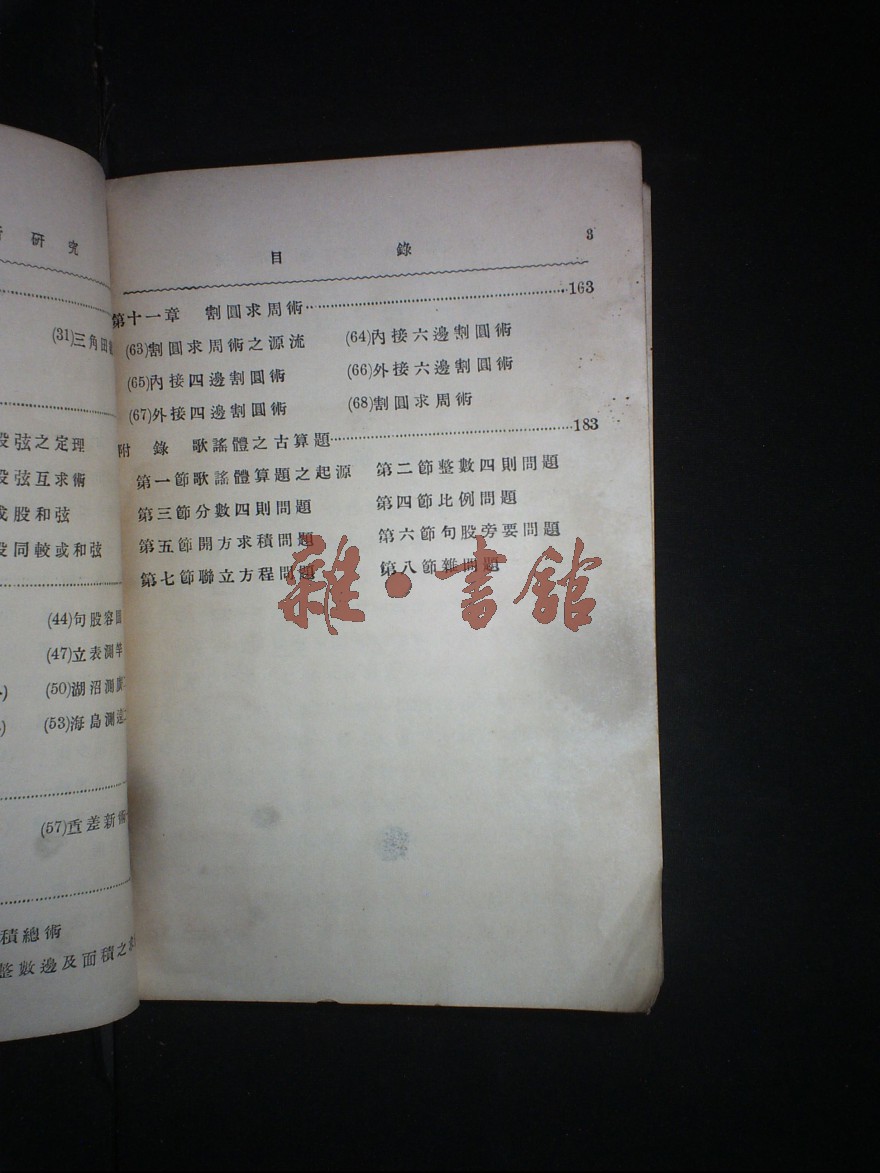 研究
(31)三角田
股弦之定理
股弦互求術
或股和弦
股同較或和弦
(44)句股容圓
(47)立表測竿
(50)湖沼測廣
(53)海島測遠
(57)重差新術
積總術
整數邊及面積之
目 錄 3
第十一章 割圓求周術 163
(63)割圓求周術之源流 (64)內接六邊割圓術
(65)內接四邊割圓術 (66)外接六邊割圓術
(67)外接四邊割圓術 (68)割圓求周術
附 錄 歌謠體之古算題 183
第一節歌謠體算題之起源 第二節整數四則問題
第三節分數四則問題 第四節比例問題
第五節開方求積問題 第六節句股旁要問題
第七節聯立方程問題 第八節雜問題
雜·書館